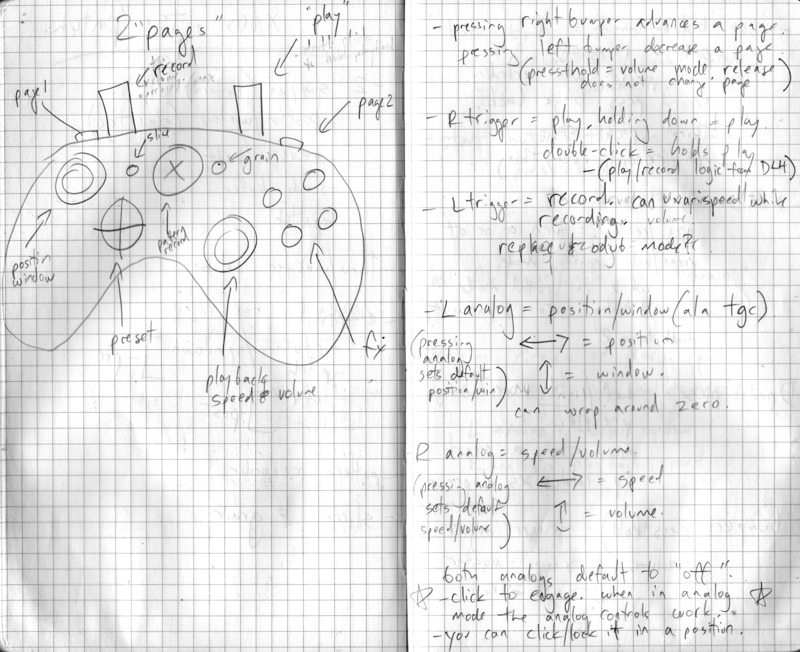 2 "pages"
"play"
record
page1
page2
slice
grain
X
pattern
record
position
window
preset
playback
speed & volume
fx
- pressing right bumper advances a page.
pressing left bumper decrease a page.
(press+hold = volume mode, release
does not change page)
- R trigger = play, holding down = play.
double-click = holds play
- (play/record logic from DLH)
- L trigger = record. can varispeed while
recording. volume.
replace & mode?
- L analog = position/window (ala tgc)
(pressing
analog
sets default
position/win)
↔ = position
↕ = window.
can wrap around zero.
R analog = speed/volume.
(pressing analog
sets default
speed/volume)
↔ = speed
↕ = volume.
both analogs default to "off".
☆ - click to engage. when in analog ☆
mode the analog controls work.
- you can click/lock it in a position.